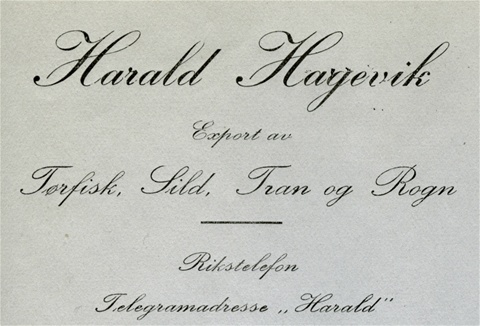 Harald Hagevik
Export av
Tørfisk, Sild, Tran og Rogn
Rikstelefon
Telegramadresse „Harald"